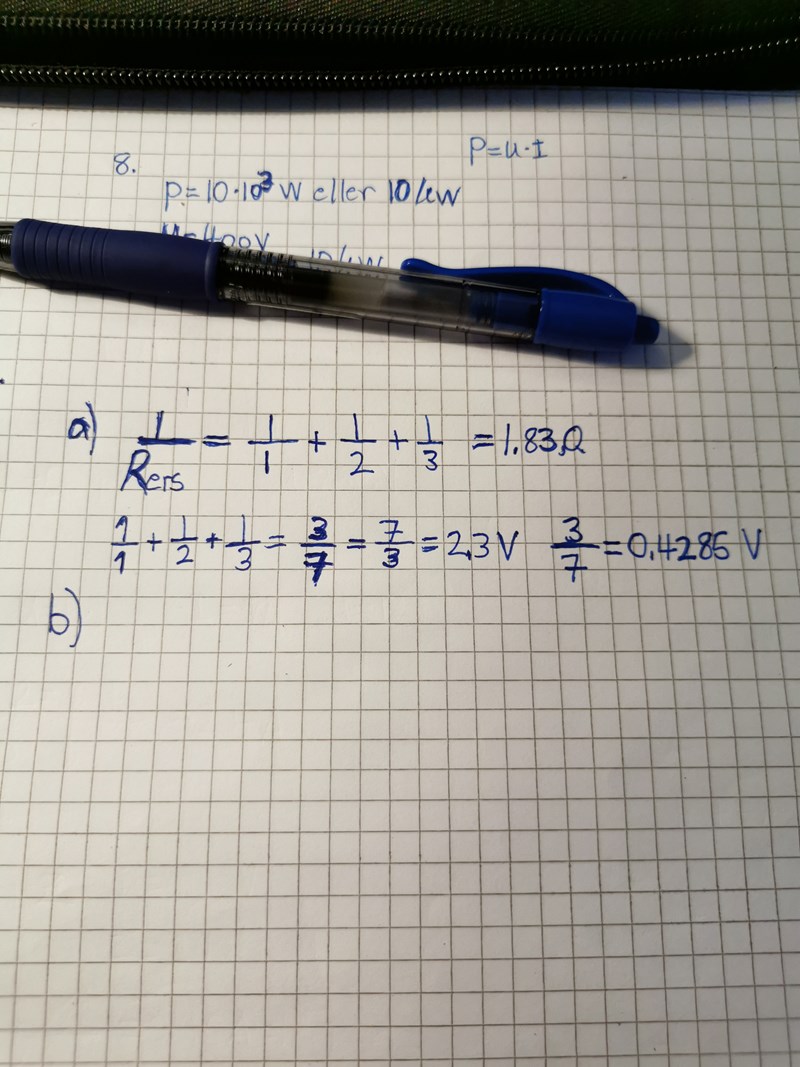 P=U·I
8.
P=10·10³ W eller 10 kW
U=400V
10 kW
a) 1/Rers = 1/1 + 1/2 + 1/3 = 1.83Ω
1/1 + 1/2 + 1/3 = 3/7 = 7/3 = 2,3 V 3/7 = 0.4285 V
b)